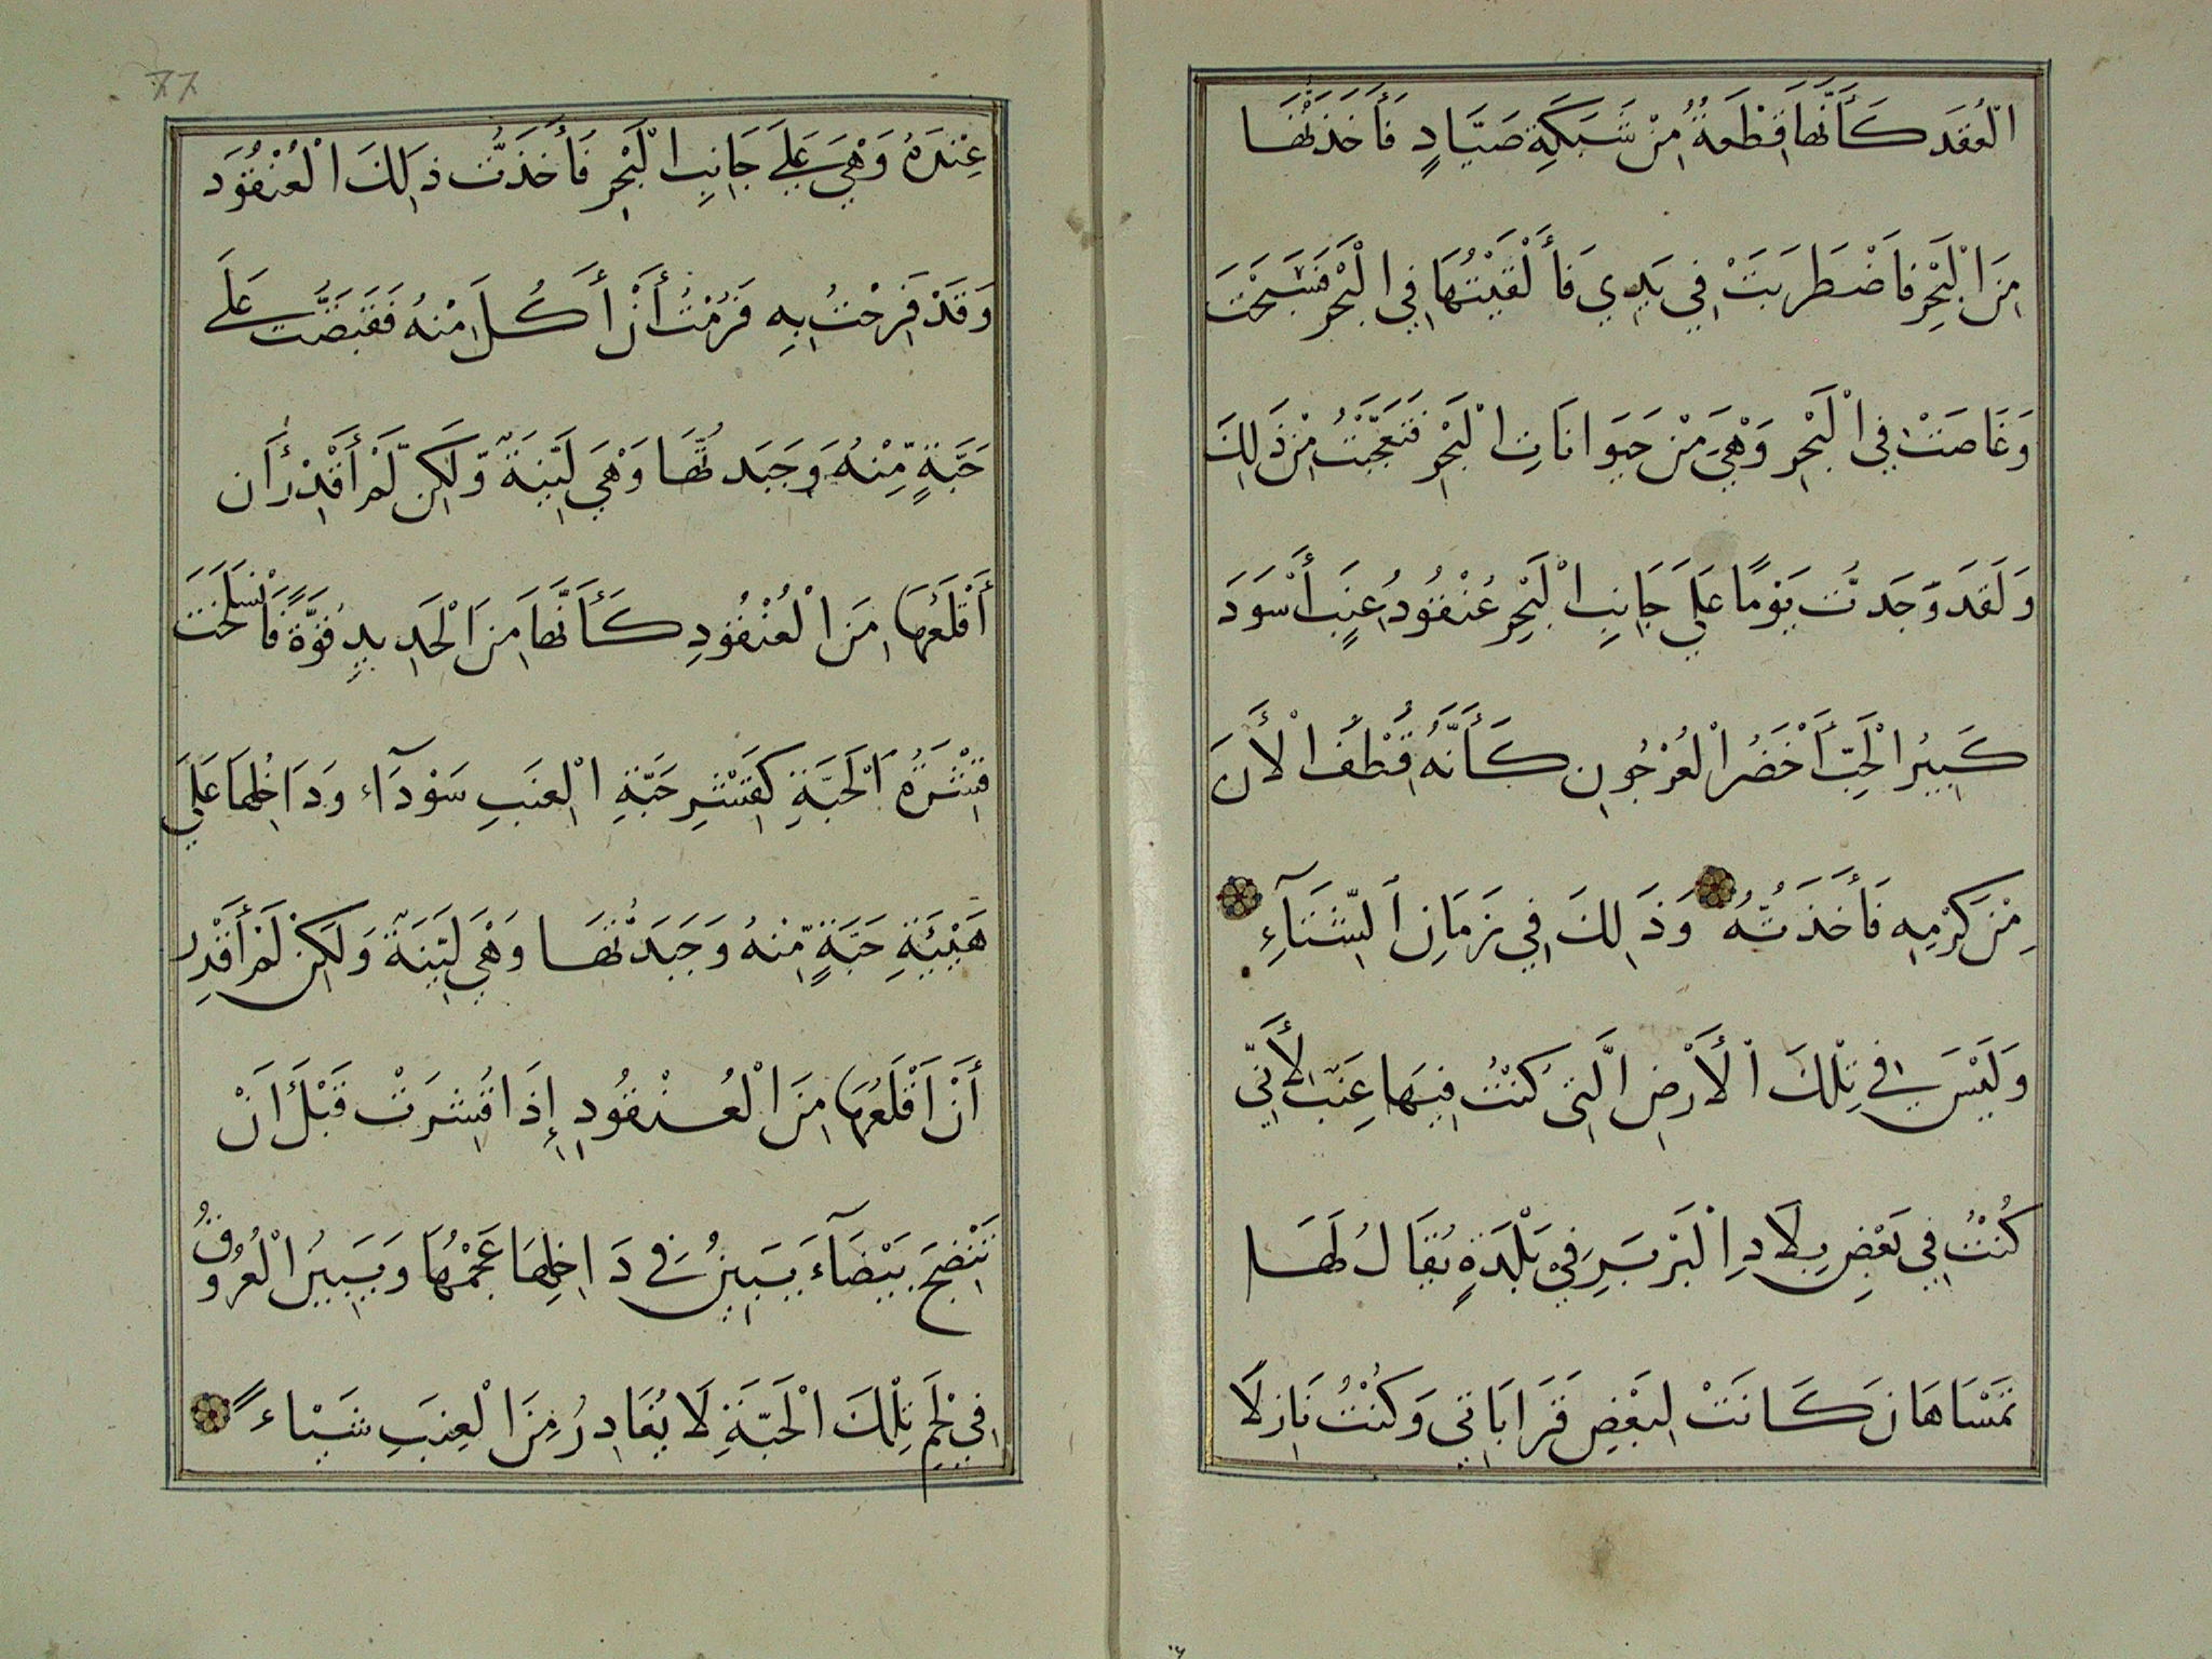 الْعُقَدِ كَأَنَّهَا قِطْعَةٌ مِنْ شَبَكَةِ صَيَّادٍ فَأَخَذْتُهَا
مِنَ الْبَحْرِ فَاضْطَرَبَتْ فِي يَدِي فَأَلْقَيْتُهَا فِي الْبَحْرِ فَسَبَحَتْ
وَغَاصَتْ فِي الْبَحْرِ وَهْيَ مِنْ حَيَوَانَاتِ الْبَحْرِ فَتَعَجَّبْتُ مِنْ ذَلِكَ
وَلَقَدْ وَّجَدْتُ يَوْمًا عَلَى جَانِبِ الْبَحْرِ عُنْقُودَ عِنَبٍ أَسْوَدَ
كَبِيرُ الْحَبِّ أَخْضَرُ الْعُرْجُونِ كَأَنَّهُ قُطِفَ الْأَنَ
مِنْ كَرْمِهِ فَأَخَذْتُهُ وَذَلِكَ فِي زَمَانِ الشِّتَآءِ
وَلَيْسَ فِي تِلْكَ الْأَرْضِ الَّتِي كُنْتُ فِيهَا عِنَبٌ لِأَنِّي
كُنْتُ فِي بَعْضِ بِلَادِ الْبَرْبَرِ فِي بَلْدَةٍ يُقَالُ لَهَا
تَمْسَاهَانَ كَانَتْ لِبَعْضِ قَرَابَاتِي وَكُنْتُ نَازِلًا
٧٧
عِنْدَهُ وَهْيَ عَلَى جَانِبِ الْبَحْرِ فَأَخَذْتُ ذَلِكَ الْعُنْقُودَ
وَقَدْ فَرِحْتُ بِهِ فَرُمْتُ أَنْ أَكُلَ مِنْهُ فَقَبَضْتُ عَلَى
حَبَّةٍ مِّنْهُ وَجَبَدتُّهَا وَهْيَ لَيِّنَةٌ وَّلَكِن لَّمْ أَقْدِرْ أَن
أَقْلَعَهَا مِنَ الْعُنْقُودِ كَأَنَّهَا مِنَ الْحَدِيدِ قُوَّةً فَانْسَلَخَتْ
قِشْرَةُ الْحَبَّةِ كَقِشْرِ حَبَّةِ الْعِنَبِ سَوْدَآءَ وَدَاخِلُهَا عَلَى
هَيْئَةِ حَبَّةٍ مِّنْهُ وَجَبَدتُّهَا وَهْيَ لَيِّنَةٌ وَلَكِنْ لَمْ أَقْدِرْ
أَنْ أَقْلَعَهَا مِنَ الْعُنْقُودِ إِذَا قُشِرَتْ قَبْلَ أَنْ
تَنْضَجَ بَيْضَآءَ يَبِينُ فِي دَاخِلِهَا عَجْمُهَا وَيَبِينُ الْعُرُوقُ
فِي لَحْمِ تِلْكَ الْحَبَّةِ لَا يُغَادِرُ مِنَ الْعِنَبِ شَيْاءً